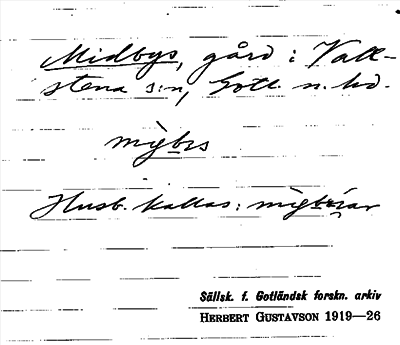 Midbys, gård i Vall-
stena s:n, Gotl. n. hd.
mìgbs
Husb. kallas: mìgbrar
Sällsk. f. Gotländsk forskn. arkiv
HERBERT GUSTAVSON 1919—26